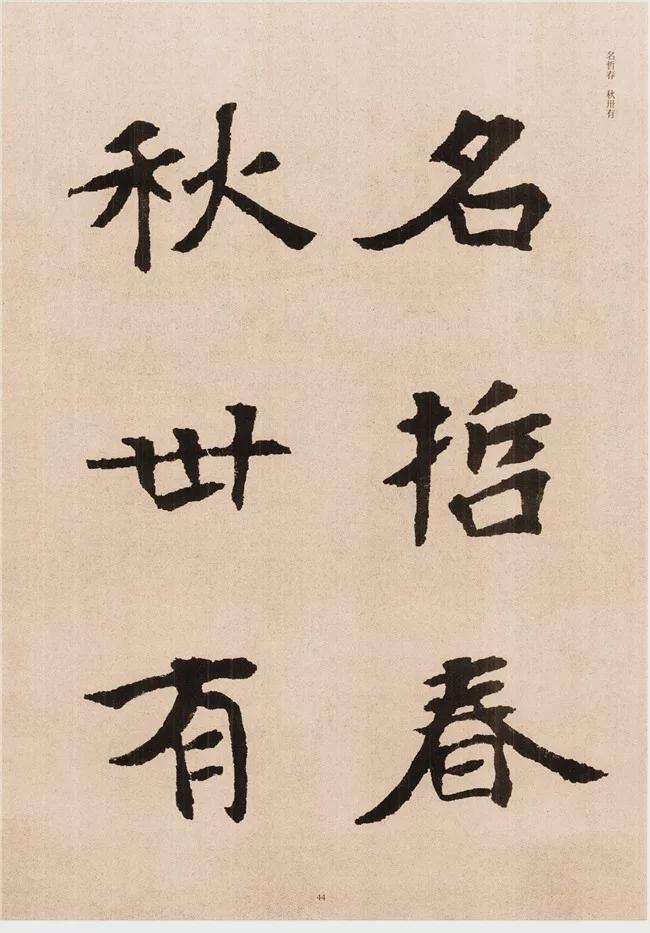 名哲春 秋卅有
名哲春
秋卅有
44